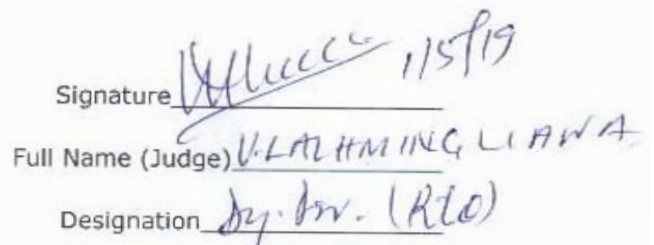 Signature 1/5/19
Full Name (Judge) V. LALHMINGLIAWA
Designation Dy. Dir. (Rtd)